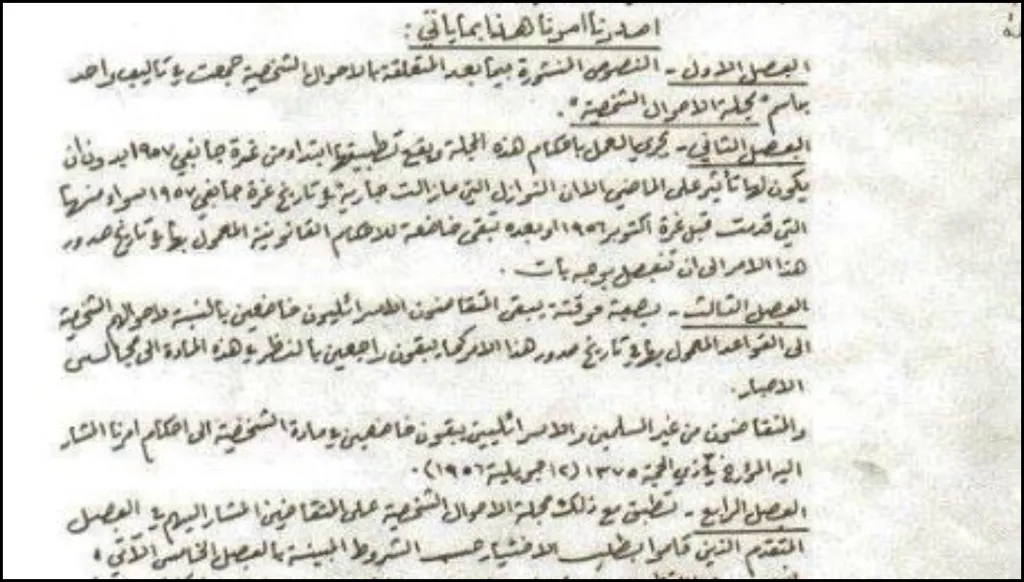 اصدرنا امرنا هذا بما ياتي :
الفصل الاول - النصوص المنشورة فيما بعد المتعلقة بالاحوال الشخصية جمعت في تاليف واحد
باسم "مجلة الاحوال الشخصية" .
الفصل الثاني - يجري العمل باحكام هذه المجلة ويقع تطبيقها ابتداء من غرة جانفي ١٩٥٧ بدون ان
يكون لها تأثير على الماضي الا ان النوازل التي مازالت جارية في تاريخ غرة جانفي ١٩٥٧ سواء منها
التي قدمت قبل غرة اكتوبر ١٩٥٦ او بعده تبقى خاضعة للاحكام القانونية المعمول بها في تاريخ صدور
هذا الامر الى ان تفصل بوجه بات .
الفصل الثالث - بصفة موقتة يبقى المتقاضون الاسرائليون خاضعين بالنسبة لاحوالهم الشخصية
الى القواعد المعمول بها في تاريخ صدور هذا الامر كما يبقون راجعين بالنظر في هذه المادة الى مجالس
الاحبار .
والمتقاضون من غير المسلمين والاسرائليين يبقون خاضعين في مادة الشخصية الى احكام امرنا المشار
اليه المؤرخ في ذي الحجة ١٣٧٥ (١٢ جويلية ١٩٥٦) .
الفصل الرابع - تطبق مع ذلك مجلة الاحوال الشخصية على المتقاضين المشار اليهم في الفصل
المتقدم الذين قاموا بطلب الاختيار حسب الشروط المبينة بالفصل الخامس الآتي :